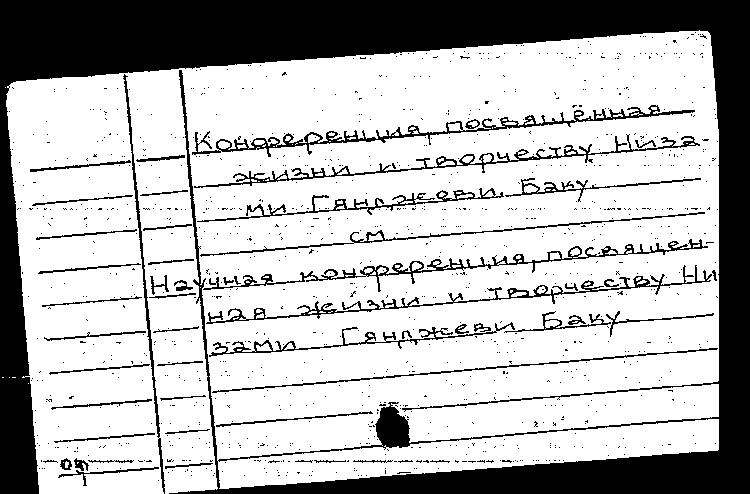 Конференция, посвящённая
жизни и творчеству Низа-
ми Гянджеви. Баку.
см.
Научная конференция, посвящен-
ная жизни и творчеству Ни
зами Гянджеви Баку.